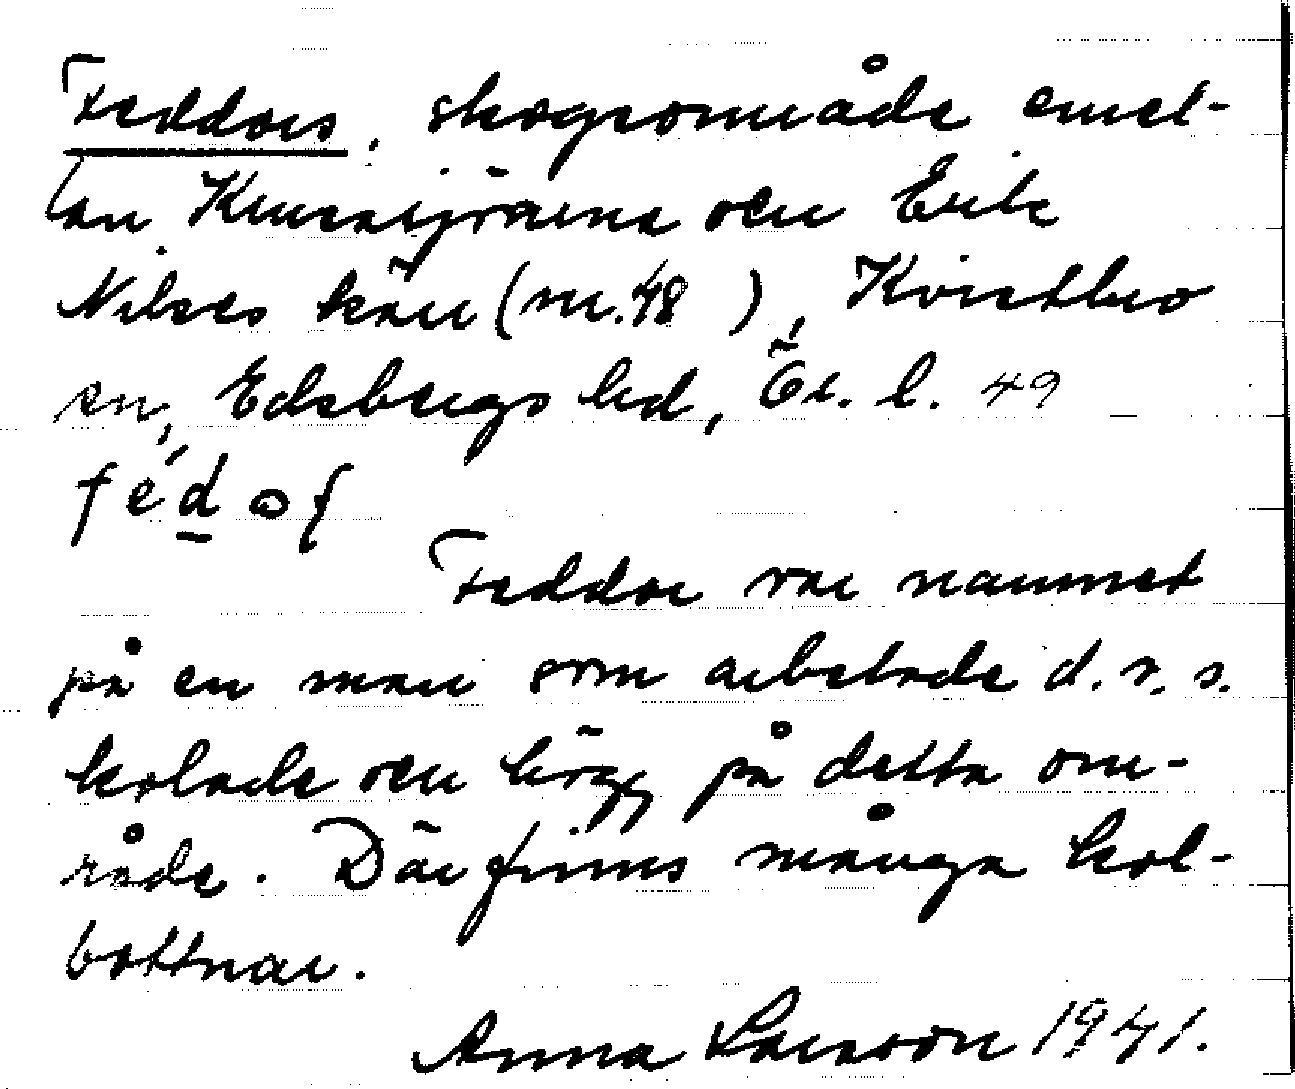 Feddors, skogsområde emel-
lan Kvarntjärna och Erik
Nilses kärr (nr. 48 ), Kvistbro
sn, Edsbergs hd, Ör. l. 49
Feddor var namnet
på en man som arbetade d.v.s.
kolade och högg på detta om-
råde. Där finns många kol-
bottnar.
Anna Larsson 1941.